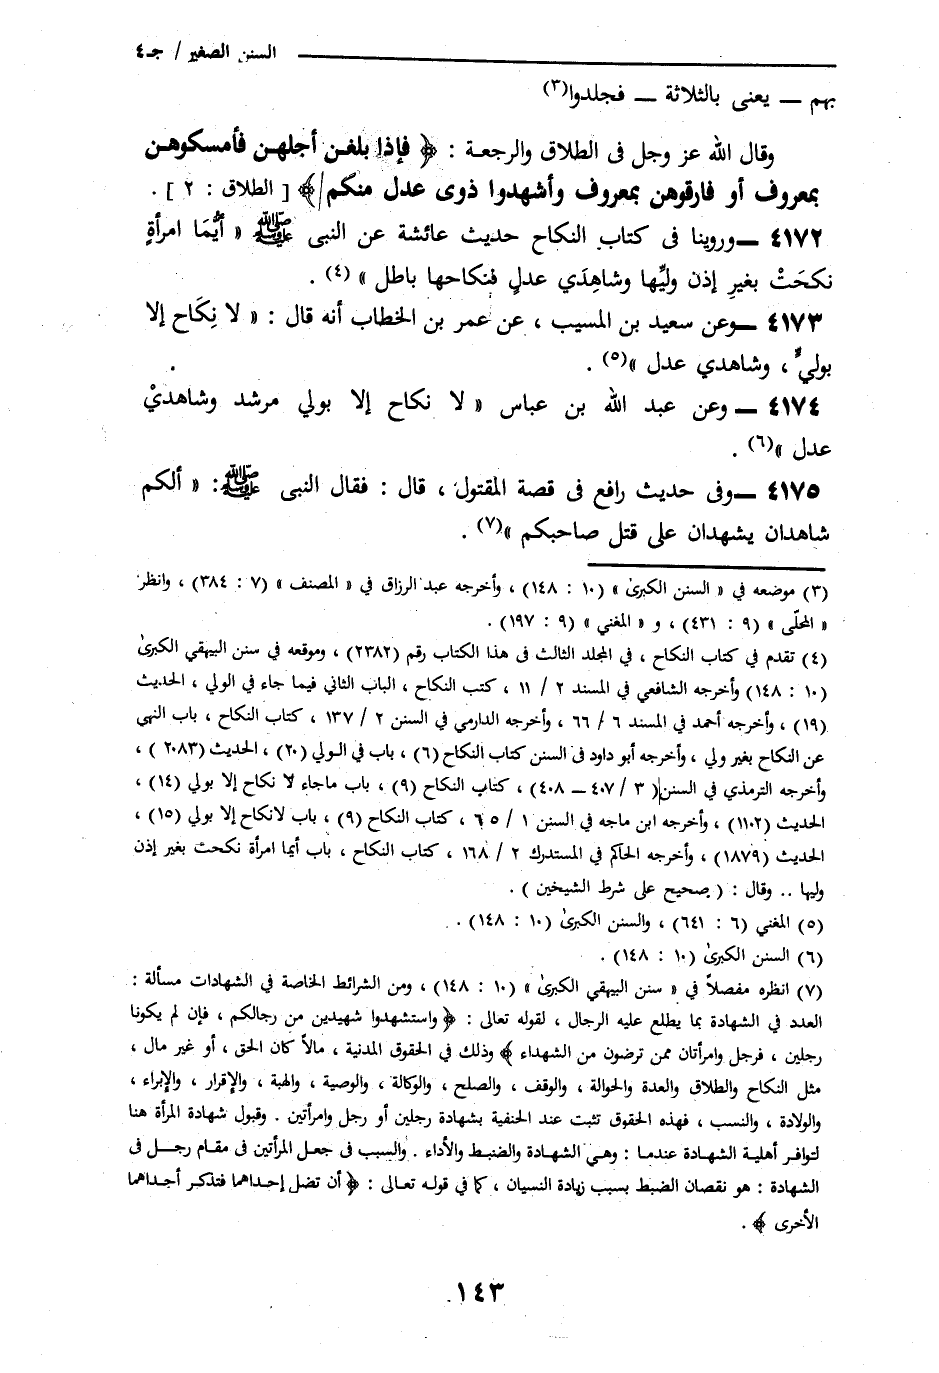 السنن الصغير / جـ٤
بهم ــ يعنى بالثلاثة ــ فجلدوا(٣)
وقال الله عز وجل فى الطلاق والرجعة : ﴿ فإذا بلغن أجلهن فأمسكوهن
بمعروف أو فارقوهن بمعروف وأشهدوا ذوى عدل منكم ﴾ [ الطلاق : ٢ ] .
٤١٧٢ ــ وروينا فى كتاب النكاح حديث عائشة عن النبى ﷺ « أيُّمَا امرأةٍ
نكحَتْ بغيرِ إذن وليِّها وشاهِدَي عدلٍ فنكاحها باطل » (٤) .
٤١٧٣ ــ وعن سعيد بن المسيب ، عن عمر بن الخطاب أنه قال : « لا نِكَاح إلا
بوليٍّ ، وشاهدي عدل »(٥) .
٤١٧٤ ــ وعن عبد الله بن عباس « لا نكاح إلا بولي مرشد وشاهديْ
عدل »(٦) .
٤١٧٥ ــ وفى حديث رافع فى قصة المقتول ، قال : فقال النبى ﷺ : « ألكم
شاهدان يشهدان على قتل صاحبكم »(٧) .
(٣) موضعه في « السنن الكبرىٰ » (١٠ : ١٤٨) ، وأخرجه عبد الرزاق في « المصنف » (٧ : ٣٨٤) ، وانظر
« المحلّى » (٩ : ٤٣١) ، و « المغني » (٩ : ١٩٧) .
(٤) تقدم في كتاب النكاح ، في المجلد الثالث فى هذا الكتاب رقم (٢٣٨٢) ، وموقعه في سنن البيهقي الكبرىٰ
(١٠ : ١٤٨) وأخرجه الشافعي في المسند ٢ / ١١ ، كتب النكاح ، الباب الثاني فيما جاء في الولي ، الحديث
(١٩) ، وأخرجه أحمد في المسند ٦ / ٦٦ ، وأخرجه الدارمي في السنن ٢ / ١٣٧ ، كتاب النكاح ، باب النهي
عن النكاح بغير ولي ، وأخرجه أبو داود فى السنن كتاب النكاح (٦) ، باب في الولي (٢٠) ، الحديث (٢٠٨٣) ،
وأخرجه الترمذي في السنن( ٣ / ٤٠٧ ــ ٤٠٨) ، كتاب النكاح (٩) ، باب ماجاء لا نكاح إلا بولي (١٤) ،
الحديث (١١٠٢) ، وأخرجه ابن ماجه في السنن ١ / ٦٠٥ ، كتاب النكاح (٩) ، باب لانكاح إلا بولي (١٥) ،
الحديث (١٨٧٩) ، وأخرجه الحاكم في المستدرك ٢ / ١٦٨ ، كتاب النكاح ، باب أيما امرأة نكحت بغير إذن
وليها .. وقال : ( صحيح على شرط الشيخين ) .
(٥) المغني (٦ : ٦٤١) ، والسنن الكبرىٰ (١٠ : ١٤٨) .
(٦) السنن الكبرىٰ (١٠ : ١٤٨) .
(٧) انظره مفصلاً في « سنن البيهقي الكبرىٰ » (١٠ : ١٤٨) ، ومن الشرائط الخاصة في الشهادات مسألة :
العدد في الشهادة بما يطلع عليه الرجال ، لقوله تعالى : ﴿ واستشهدوا شهيدين من رجالكم ، فإن لم يكونا
رجلين ، فرجل وامرأتان ممن ترضون من الشهداء ﴾ وذلك في الحقوق المدنية ، مالاً كان الحق ، أو غير مال ،
مثل النكاح والطلاق والعدة والحوالة ، والوقف ، والصلح ، والوكالة ، والوصية ، والهبة ، والإقرار ، والإبراء ،
والولادة ، والنسب ، فهذه الحقوق تثبت عند الحنفية بشهادة رجلين أو رجل وامرأتين . وقبول شهادة المرأة هنا
لتوافر أهلية الشهادة عندما : وهي الشهادة والضبط والأداء . والسبب فى جعل المرأتين فى مقام رجل فى
الشهادة : هو نقصان الضبط بسبب زيادة النسيان ، كما في قوله تعالى : ﴿ أن تضل إحداهما فتذكر أجداهما
الأخرى ﴾ .
١٤٣